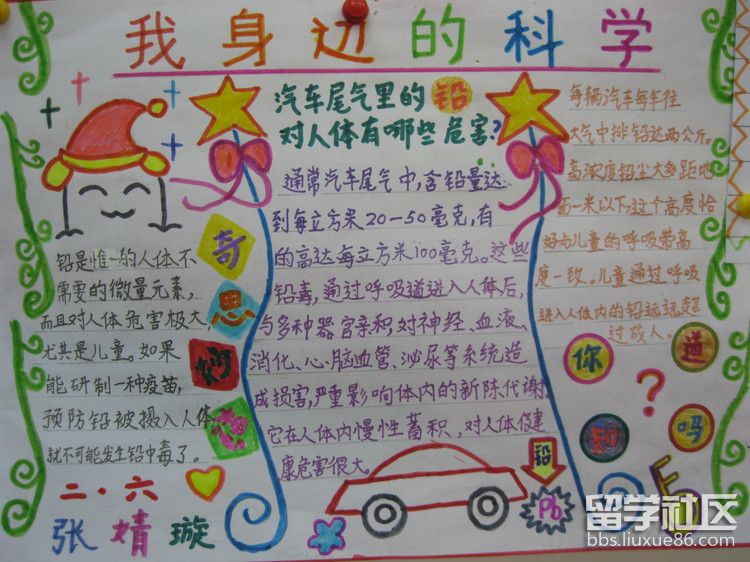 我身边的科学
铅是惟一的人体不
需要的微量元素,
而且对人体危害极大,
尤其是儿童。如果
能研制一种疫苗,
预防铅被摄入人体,
就不可能发生铅中毒了。
二·六
张婧璇
奇
思
妙
想
汽车尾气里的铅
对人体有哪些危害?
通常汽车尾气中,含铅量达
到每立方米20-50毫克,有
的高达每立方米100毫克。这些
铅毒,通过呼吸道进入人体后,
与多种器官亲积,对神经、血液、
消化、心、脑血管、泌尿等系统造
成损害,严重影响体内的新陈代谢。
它在人体内慢性蓄积、对人体健
康危害很大。
铅
Pb
每辆汽车每年往
大气中排铅达两公斤。
高浓度铅尘大多距地
面一米以下,这个高度恰
好与儿童的呼吸带高
度一致。儿童通过呼吸
进入人体内的铅远远超
过成人。
你
知
道
吗
?
留学社区
bbs.liuxue86.com